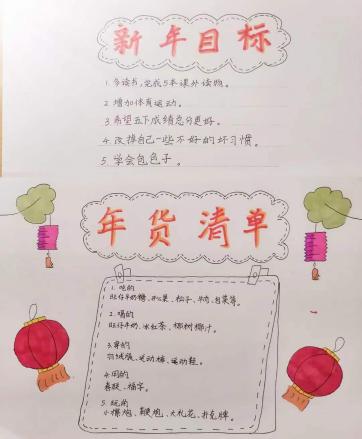 新年目标
1. 多读书,完成5本课外读物。
2. 增加体育运动。
3. 希望五下成绩总分更好。
4. 改掉自己一些不好的坏习惯。
5. 学会包包子。
年货清单
1. 吃的
旺仔牛奶糖、开心果、松子、牛肉、包菜等。
2. 喝的
旺仔牛奶、冰红茶、椰树椰汁。
3. 穿的
羽绒服、运动裤、运动鞋。
4. 用的
春联、福字。
5. 玩的
小摔炮、鞭炮、大礼花、扑克牌。